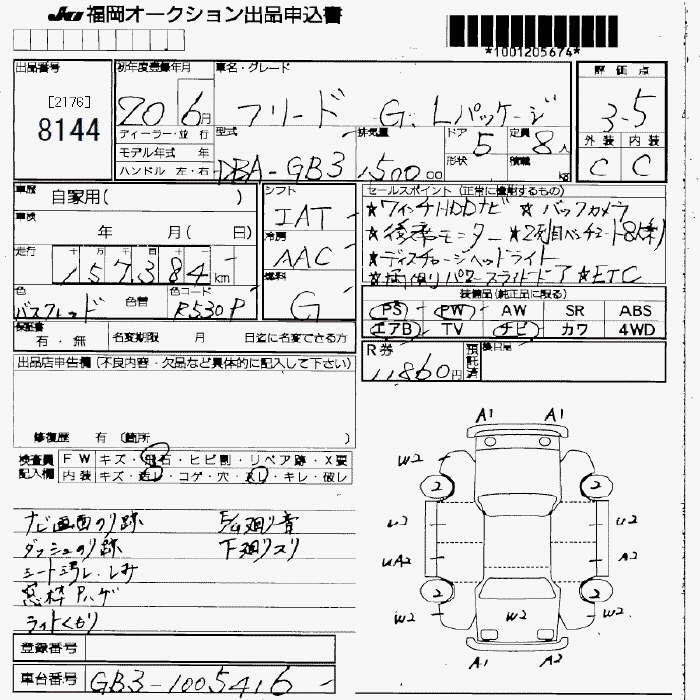 JU 福岡オークション出品申込書
*1001205674*
出品番号 初年度登録年月 車名・グレード 評価点
[2176]
8144
20 6月 フリード G. Lパッケージ 3.5
ディーラー・並行 型式 排気量 ドア 5 定員 8人 外装 内装
モデル年式 年 形状 積載 kg
ハンドル 左・右 DBA-GB3 1,500 00 C C
車歴 自家用( ) シフト セールスポイント(正常に機能するもの)
車検 年 月( 日) IAT ★7インチHDDナビ ★バックカメラ
冷房 ★後席モニター ★2列目ベンチシート8人乗り
走行 157,384km AAC ★ディスチャージヘッドライト
燃料 ★両側パワースライドドア ★ETC
色 色替 色コード G 装備品(純正品に限る)
R530P PS PW AW SR ABS
エアB TV ナビ カワ 4WD
保証書 有・無 名変期限 月 日迄に名変できる方 R券 11,860円 預託済
出品店申告欄(不良内容・欠品など具体的に記入して下さい)
修復歴 有 (箇所 )
検査員 FW キズ・飛石・ヒビ割・リペア跡・X要
記入欄 内装 キズ・汚レ・コゲ・穴・キレ・破レ
A1 A1
W2 W2
2 2
U2
A2
2 2
W2 W2 W2
A1 A2
ナビ画面のり跡
ダッシュのり跡 下廻りスリ
シート汚レ・しみ
窓枠Pハゲ
ライトくもり
登録番号
車台番号 GB3-1005416